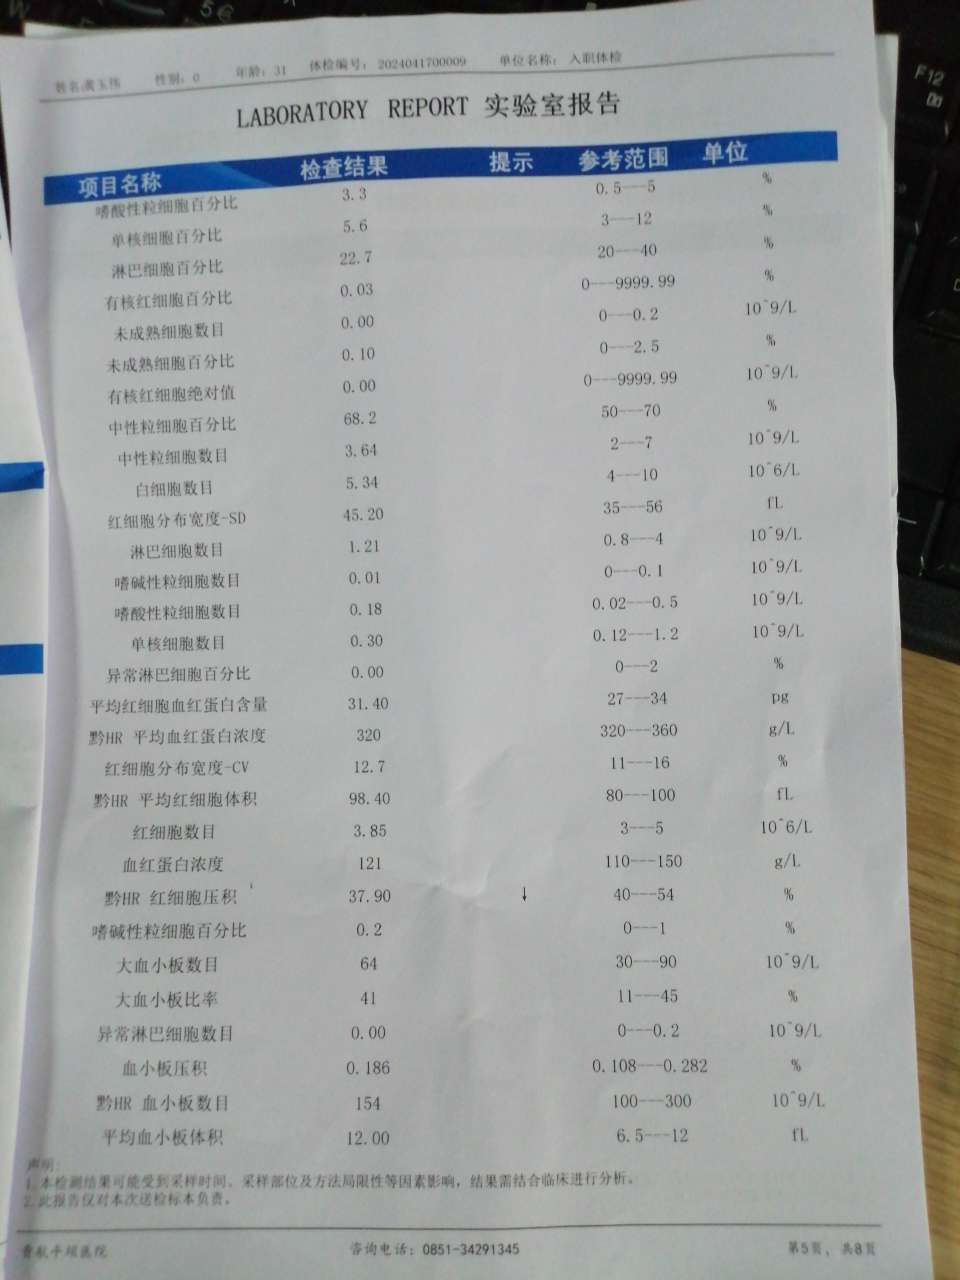 5€
F12
姓名:黄玉伟 性别：0 年龄：31 体检编号： 2024041700009 单位名称： 入职体检
LABORATORY REPORT 实验室报告
项目名称 检查结果 提示 参考范围 单位
嗜酸性粒细胞百分比 3.3 0.5---5 %
单核细胞百分比 5.6 3---12 %
淋巴细胞百分比 22.7 20---40 %
有核红细胞百分比 0.03 0---9999.99 %
未成熟细胞数目 0.00 0---0.2 10^9/L
未成熟细胞百分比 0.10 0---2.5 %
有核红细胞绝对值 0.00 0---9999.99 10^9/L
中性粒细胞百分比 68.2 50---70 %
中性粒细胞数目 3.64 2---7 10^9/L
白细胞数目 5.34 4---10 10^6/L
红细胞分布宽度-SD 45.20 35---56 fL
淋巴细胞数目 1.21 0.8---4 10^9/L
嗜碱性粒细胞数目 0.01 0---0.1 10^9/L
嗜酸性粒细胞数目 0.18 0.02---0.5 10^9/L
单核细胞数目 0.30 0.12---1.2 10^9/L
异常淋巴细胞百分比 0.00 0---2 %
平均红细胞血红蛋白含量 31.40 27---34 pg
黔HR 平均血红蛋白浓度 320 320---360 g/L
红细胞分布宽度-CV 12.7 11---16 %
黔HR 平均红细胞体积 98.40 80---100 fL
红细胞数目 3.85 3---5 10^6/L
血红蛋白浓度 121 110---150 g/L
黔HR 红细胞压积 37.90 ↓ 40---54 %
嗜碱性粒细胞百分比 0.2 0---1 %
大血小板数目 64 30---90 10^9/L
大血小板比率 41 11---45 %
异常淋巴细胞数目 0.00 0---0.2 10^9/L
血小板压积 0.186 0.108---0.282 %
黔HR 血小板数目 154 100---300 10^9/L
平均血小板体积 12.00 6.5---12 fL
声明:
1.本检测结果可能受到采样时间、采样部位及方法局限性等因素影响，结果需结合临床进行分析。
2.此报告仅对本次送检标本负责。
贵航平坝医院 咨询电话：0851-34291345 第5页，共8页